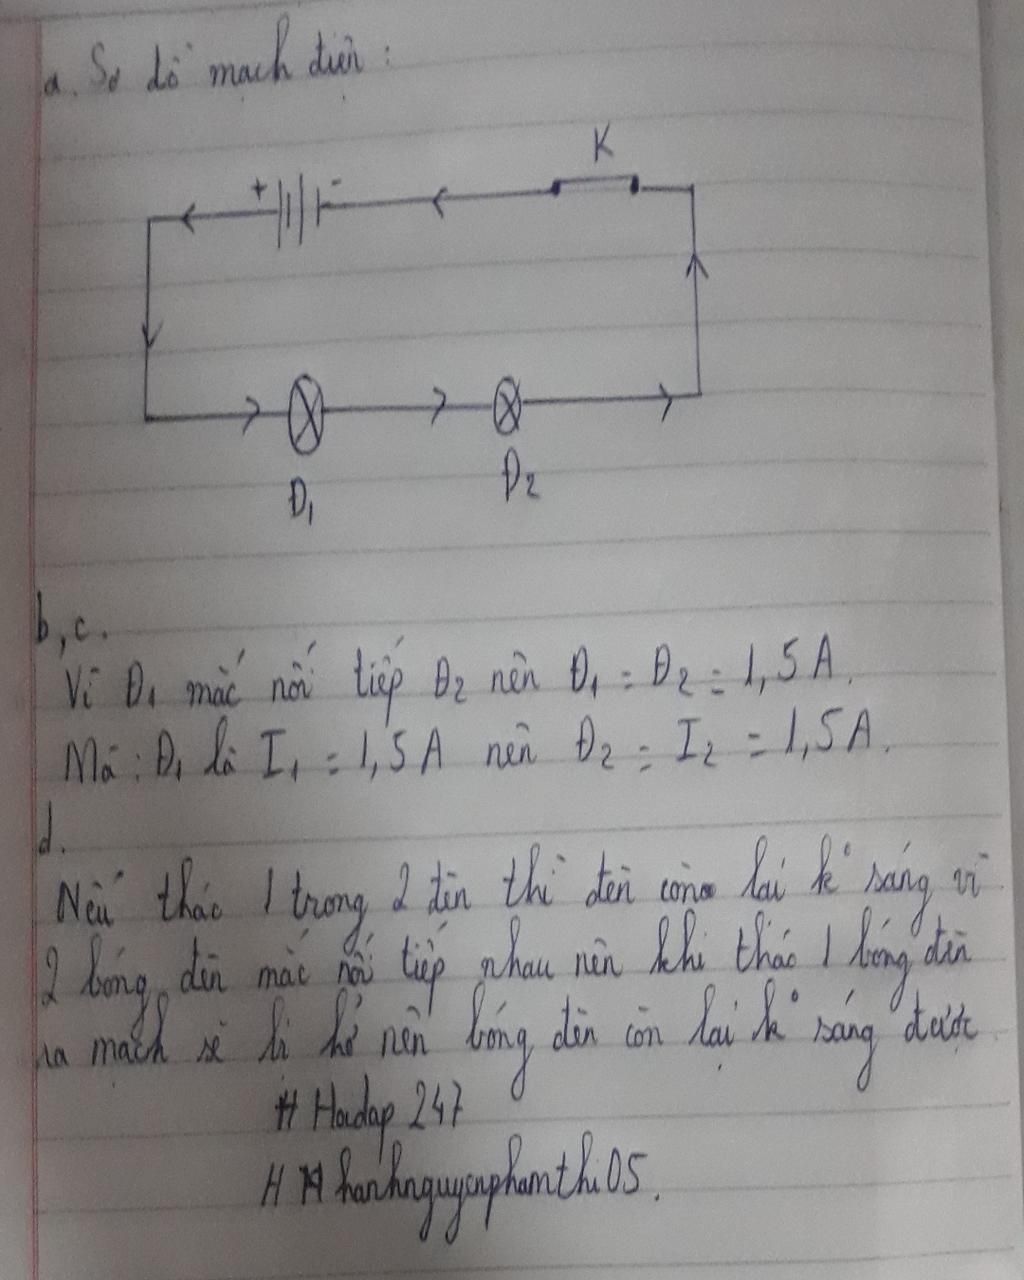 a. Sơ đồ mạch điện :
K
+ -
Đ1 Đ2
b, c.
Vì Đ1 mắc nối tiếp Đ2 nên Đ1 = Đ2 = 1,5 A.
Mà : Đ1 là I1 = 1,5 A nên Đ2 = I2 = 1,5 A.
d.
Nếu tháo 1 trong 2 đèn thì đèn còn lại k° sáng vì
2 bóng đèn mắc nối tiếp nhau nên khi tháo 1 bóng đèn
ra mạch sẽ bị hở nên bóng đèn còn lại k° sáng được
# Hoidap 247
hanhnguyenphamthi05.